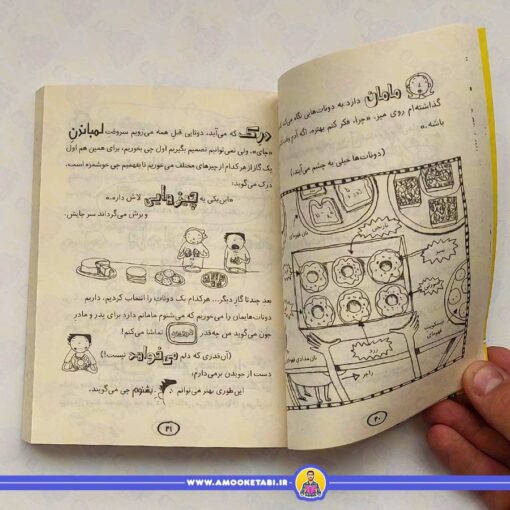 مامان دارد به دونات‌هایی نگاه می‌کند که
گذاشته‌ام روی میز. «چرا، فکر کنم بهتره. اگه آدم
باشه.»
(دونات‌ها خیلی به چشم می‌آیند.)
نارنجی
سبز
زرد
راجر
۴۰
درک که می‌آید، دوتایی قبل همه می‌رویم سروقت لمباندن
«چای»، ولی نمی‌توانیم تصمیم بگیریم اول چی بخوریم، برای همین هم اول
یک گاز از هرکدام از چیزهای مختلف می‌خوریم تا بفهمیم چی خوشمزه است.
درک می‌گوید:
«این یکی یه چیزهایی لاش داره.»
و برش می‌گرداند سر جایش.
بعد چندتا گاز دیگر... هرکدام یک دونات را انتخاب کردیم. داریم
دونات‌هایمان را می‌خوریم که می‌شنوم مامانم دارد برای پدر و مادر
جون می‌گوید من چه‌قدر تماشا می‌کنم!
(آن‌قدری که دلم می‌خواهد نیست!)
دست از جویدن برمی‌دارم،
این‌طوری بهتر می‌توانم بشنوم چی می‌گویند.
۴۱
WWW.AMOOKETABI.IR